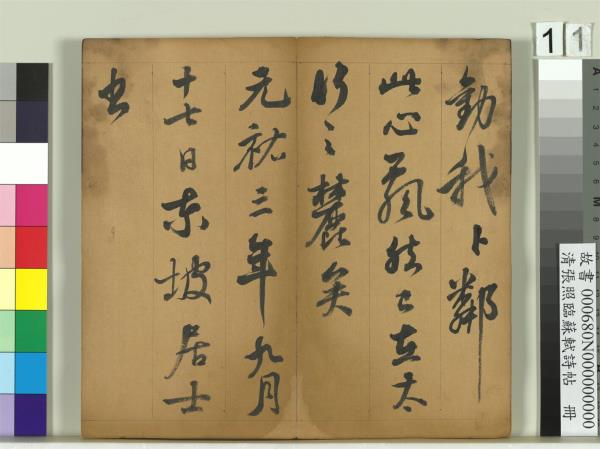 勸我卜鄰
此心飄然已在太
行之麓矣
元祐三年九月
十七日東坡居士
書
11
故書 000680N000000000
清張照臨蘇軾詩帖 冊